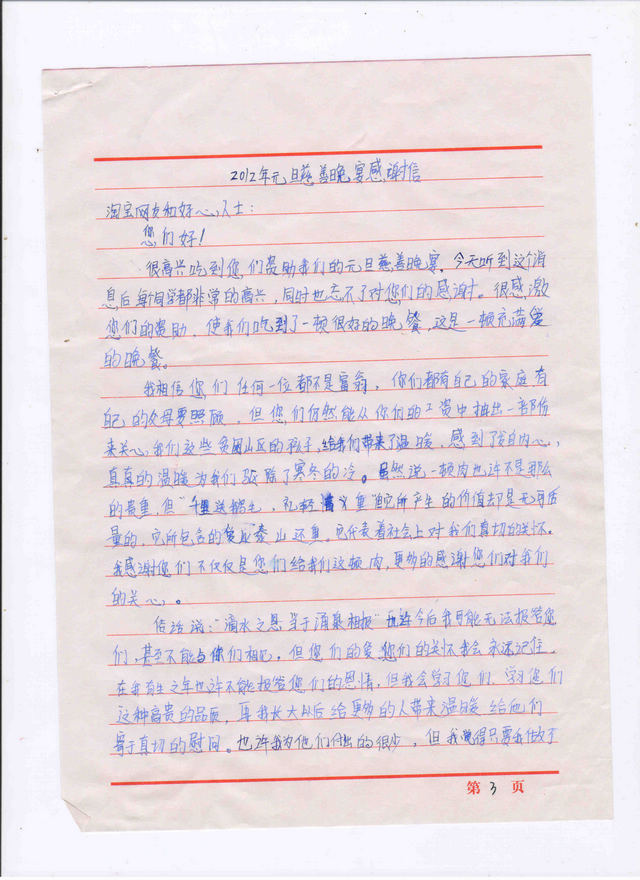 2012年元旦慈善晚宴感谢信
淘宝网友和好心人士:
您们好!
很高兴吃到您们资助我们的元旦慈善晚宴。今天听到这个消
息后每个同学都非常的高兴,同时也忘不了对您们的感谢。很感激
您们的资助,使我们吃到了一顿很好的晚餐,这是一顿充满爱
的晚餐。
我相信您们任何一位都不是富翁,你们都有自己的家庭有
自己的父母要照顾,但您们仍然能从你们的工资中抽出一部份
来关心我们这些贫困山区的孩子,给我们带来了温暖,感到了发自内心,
真真的温暖为我们驱除了寒冬的冷。虽然说一顿肉也许不是那么
的贵重,但"千里送鹅毛,礼轻情义重"它所产生的价值却是无可估
量的,它所包含的爱比泰山还重。它代表着社会上对我们真切的关怀。
我感谢您们不仅仅是您们给我们这顿肉,更多的感谢您们对我们
的关心。
俗话说:"滴水之恩当于涌泉相报"也许今后我可能无法报答您
们,甚至不能与你们相见,但您们的爱您们的关怀我会永远记住,
在我有生之年也许不能报答您们的恩情,但我会学习您们,学习您们
这种高贵的品质,再我长大以后给更多的人带来温暖给他们
寄于真切的慰问。也许我为他们付出的很少,但我觉得只要我做了
第3页